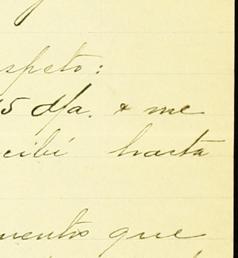 speto:
5 d/a. & me
cibí hasta
mentos que